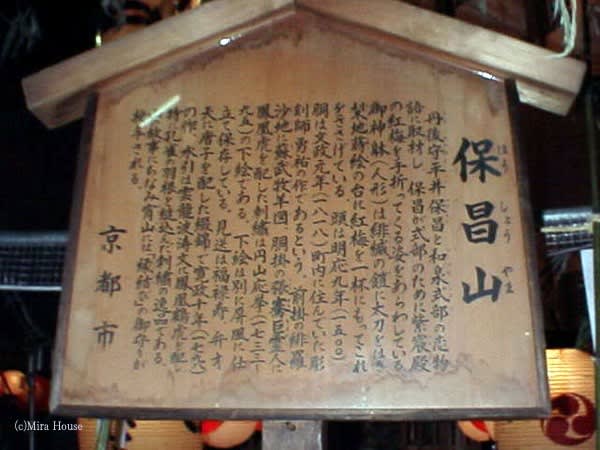 保昌山
ほうしょうやま
丹後守平井保昌と和泉式部の恋物
語に取材し、保昌が式部のために紫宸殿
の紅梅を手折ってくる姿をあらわしている。
御神躰（人形）は緋縅の鎧に太刀をはき
梨地蒔絵の台に紅梅を一杯にもってこれ
をささげている。頭は明応九年（一五〇〇）
胴は文政元年（一八一八）町内に住んでいた彫
刻師勇祐の作であるという。前掛の緋羅
沙地に蘇武牧羊図、胴掛の張騫巨霊人に
鳳凰虎を配した刺繍は円山応挙（一七三三〜
九五）の下絵である。下絵は別に屏風に仕
立て保存している。見送は福禄寿 弁才
天に唐子を配した綴錦で寛政十年（一七九八）
の作、水引は雲龍波涛文に鳳凰鶴虎を配し
孔雀羽根を組込んだ刺繍の逸品である。
故事にちなみ宵山には「縁結び」の御守りが
される。
京都市
(c)Mira House